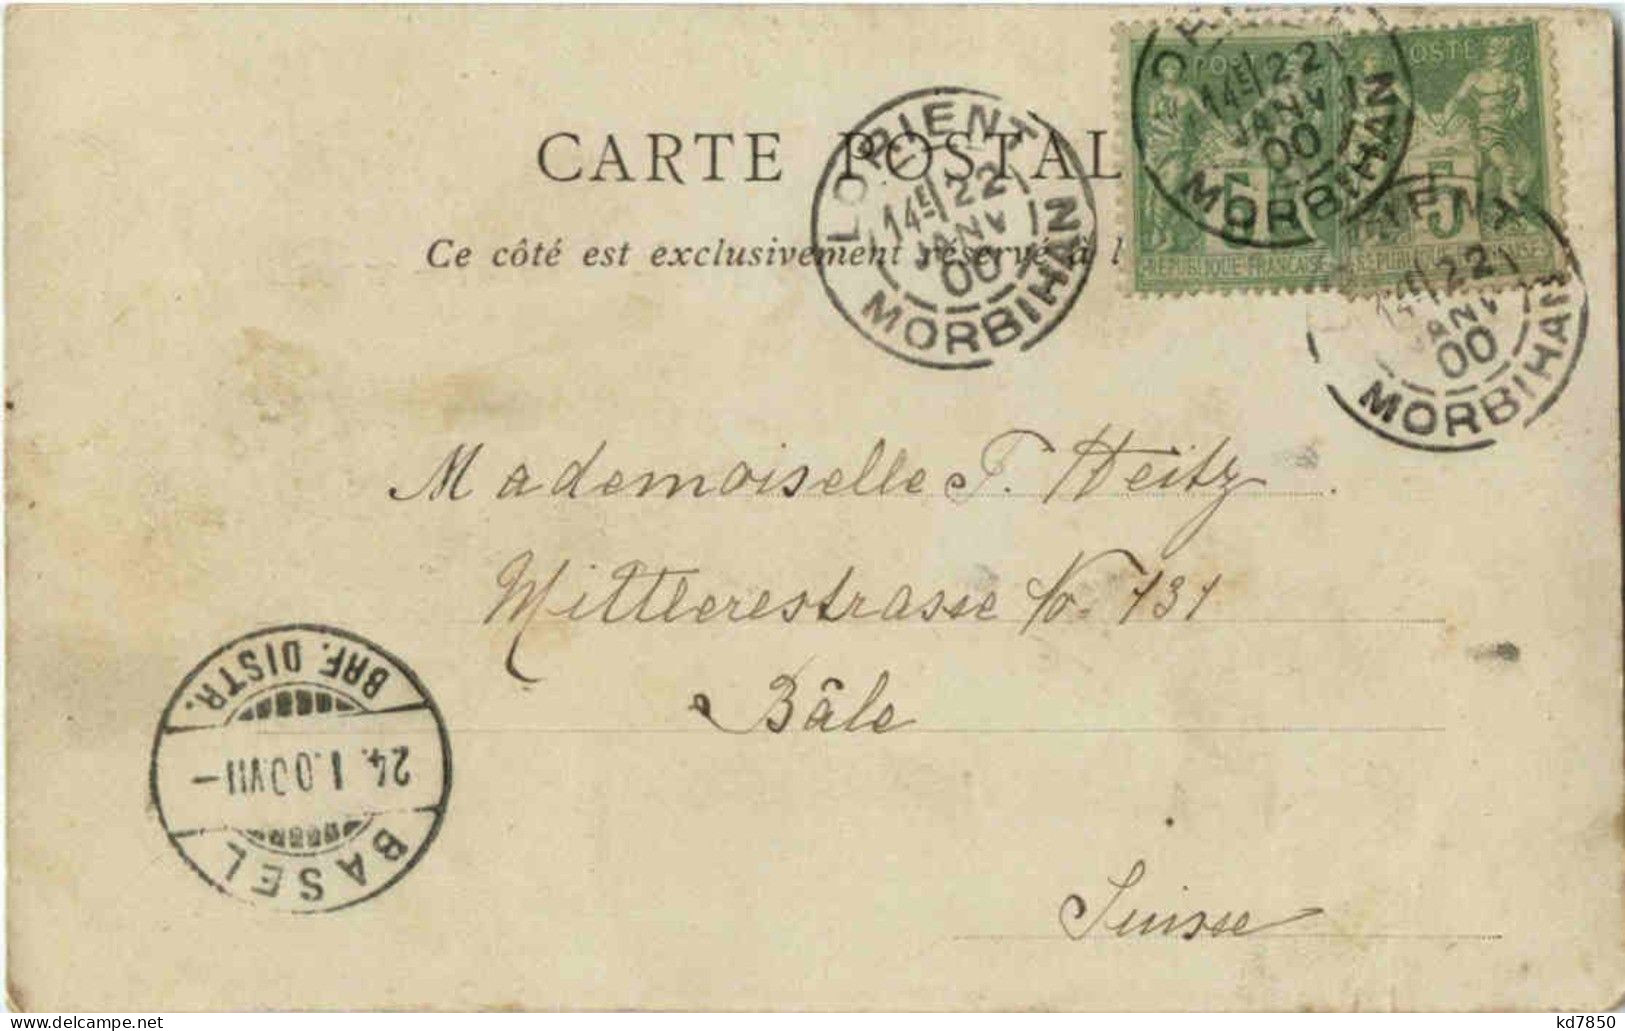 CARTE POSTAL
Ce côté est exclusivement réservé à l
LORIENT
14E 22
JANV
00
MORBIHAN
ORIE
14E 22
JANV
00
MORBIHAN
POSTE
5
REPUBLIQUE FRANÇAISE
POSTE
5
REPUBLIQUE FRANÇAISE
RIENT
22
JANV
00
MORBIHAN
Mademoiselle F. Heitz
Mittlerestrasse No. 131
Bâle
Suisse
BASEL
24. I.00.VII–
BRF. DISTR.
kd7850